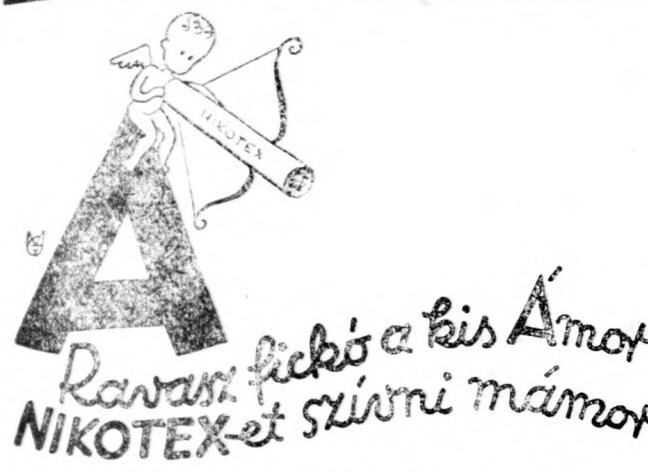 NIKOTEX
A
Ravasz fickó a kis Ámor
NIKOTEX-et szívni mámor